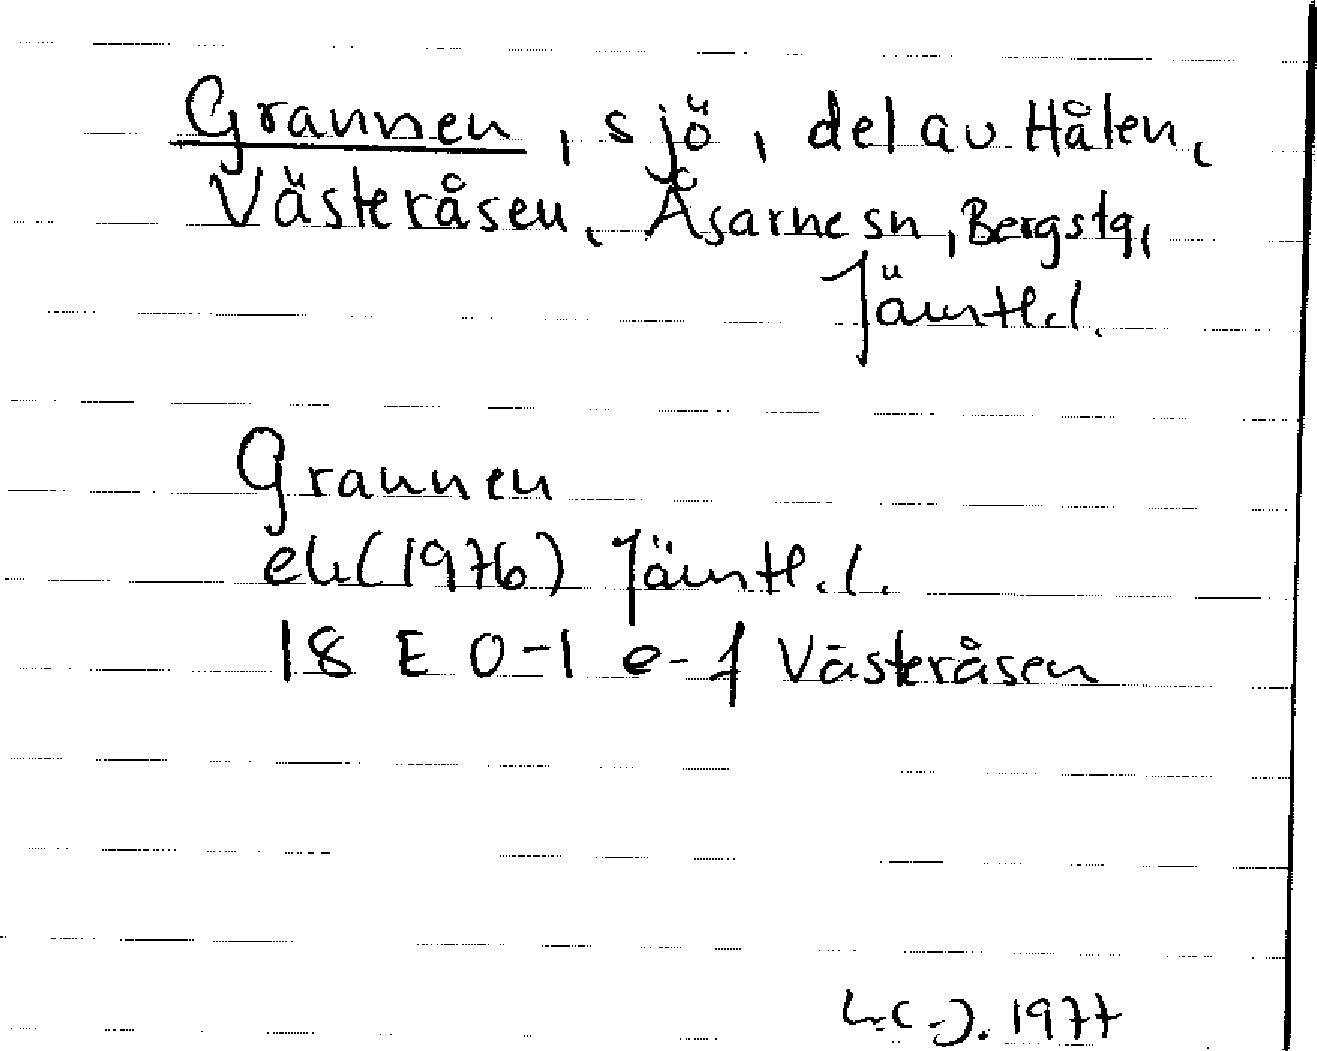 Grannen, sjö, del av Hålen,
Västeråsen, Åsarne sn, Bergstg,
Jämtl.l.
Grannen
ek (1976) Jämtl.l.
18 E 0-1 e-f Västeråsen
1977